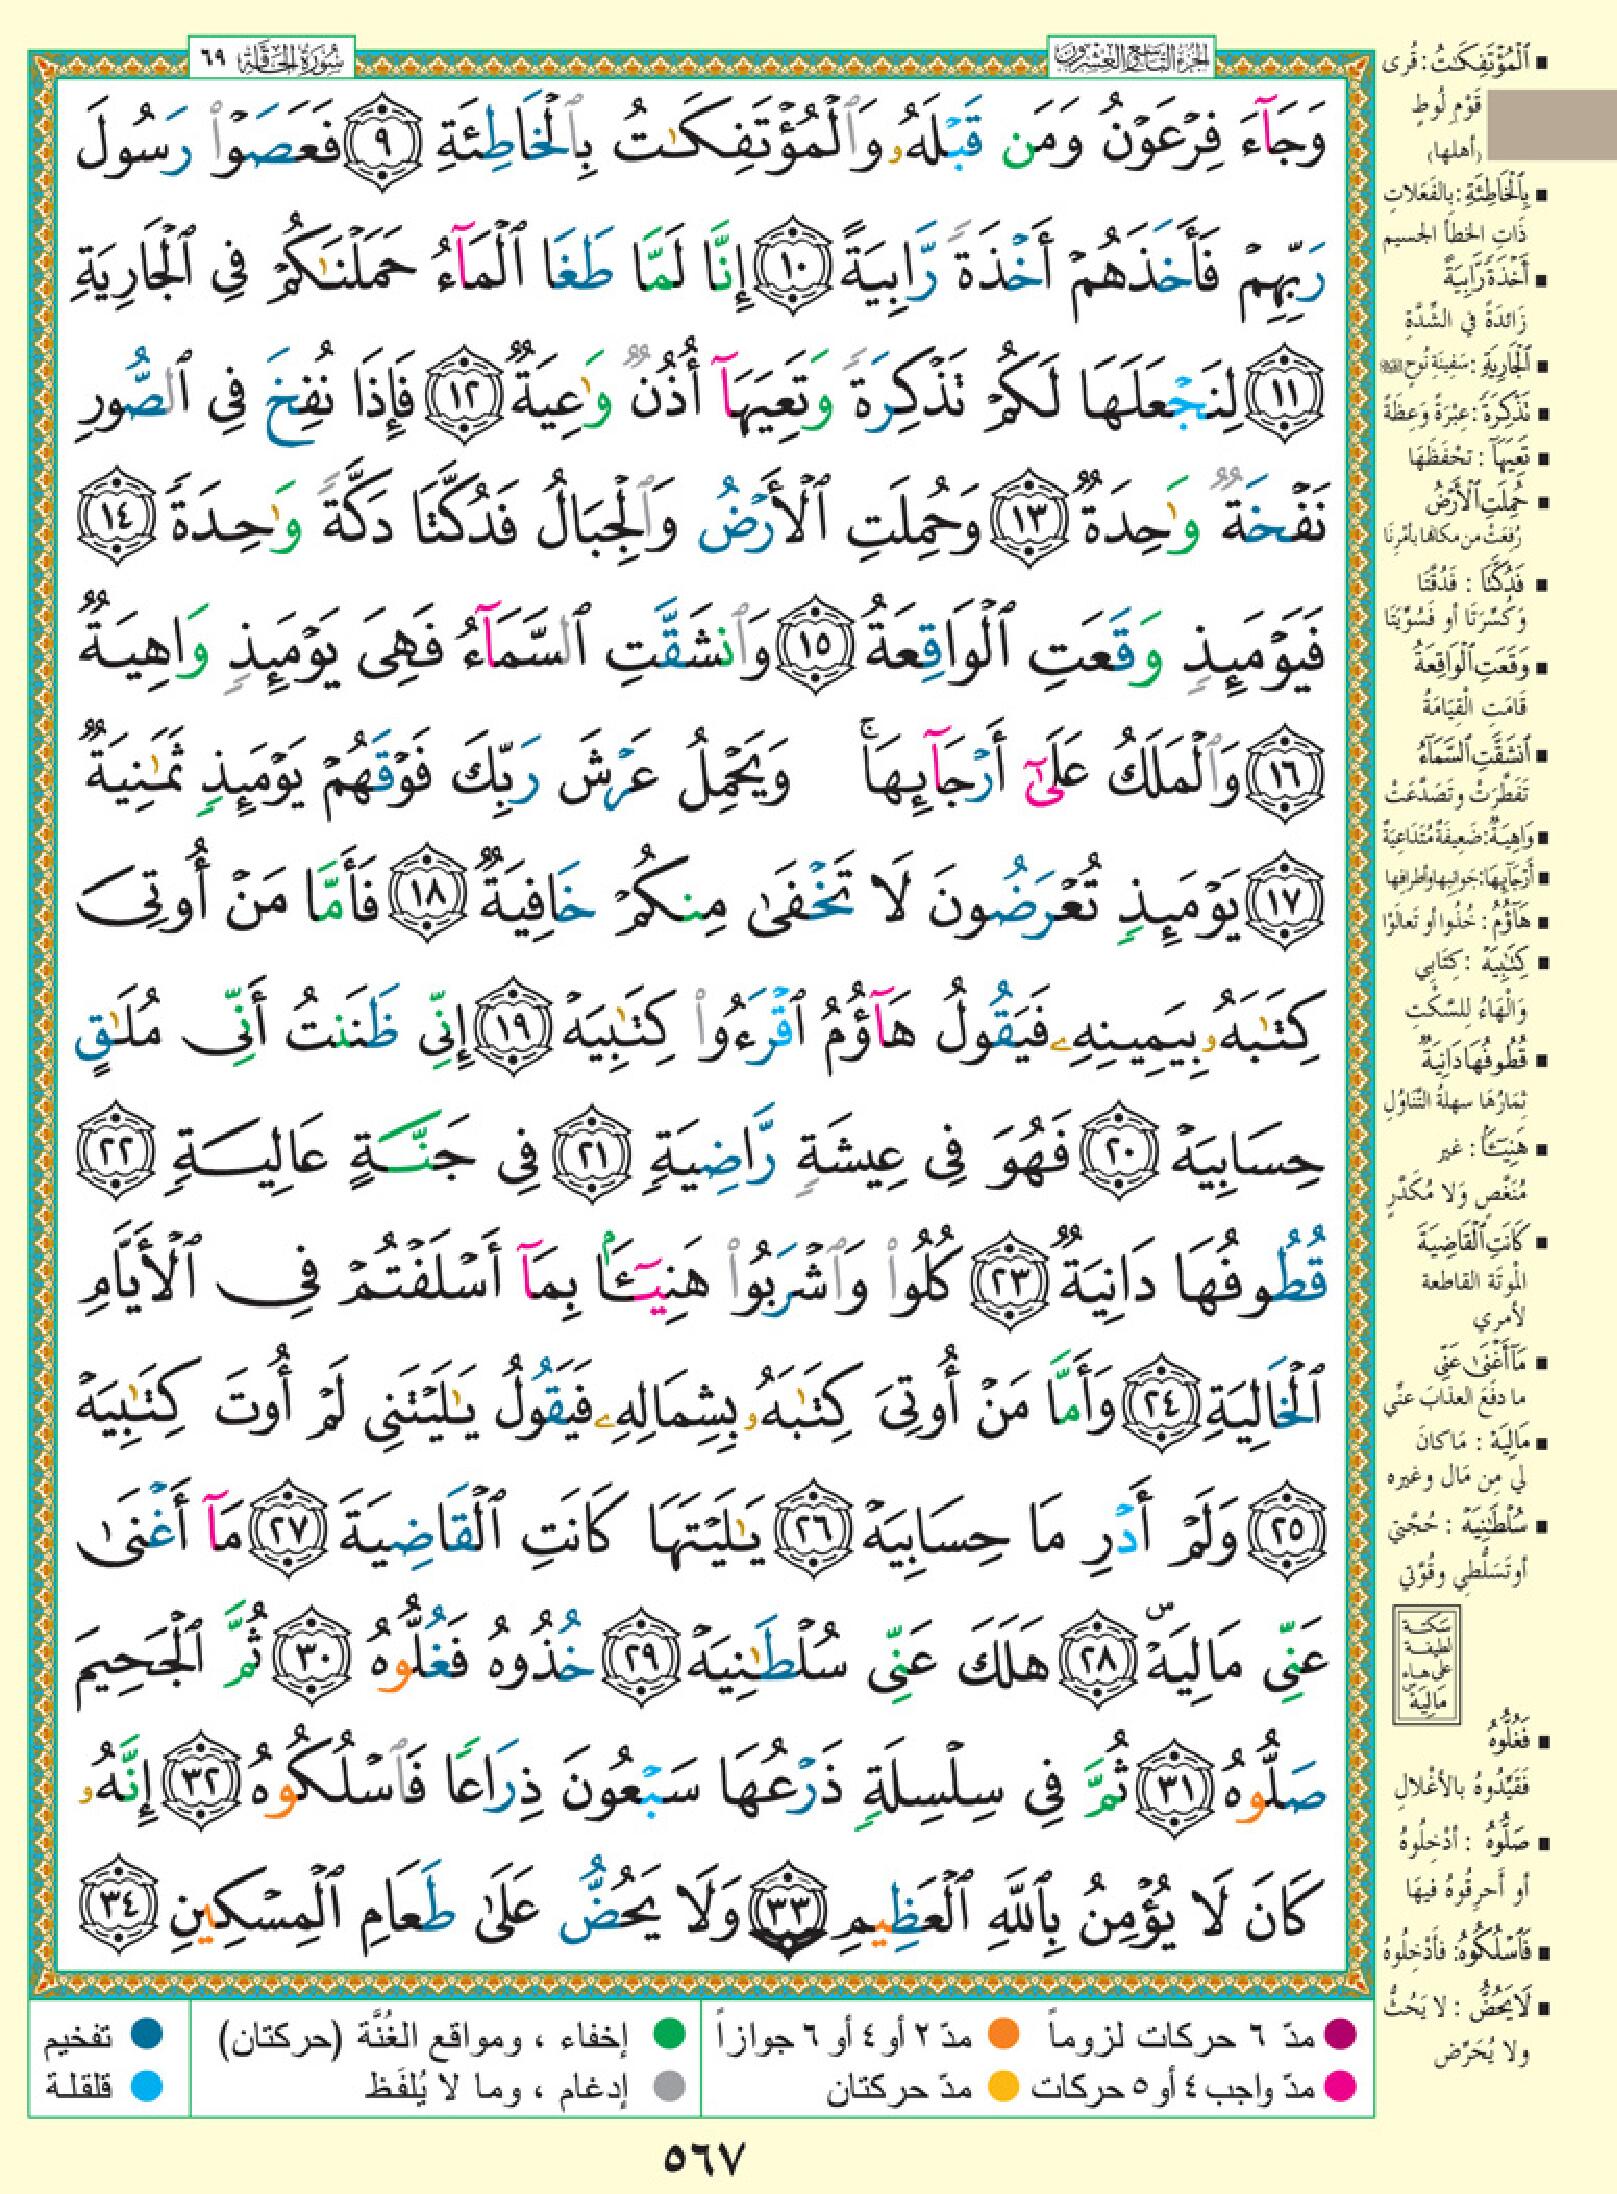 سُورَةُ الحَاقَّة ٦٩
الجزء التاسع والعشرون
وَجَآءَ فِرْعَوْنُ وَمَن قَبْلَهُۥ وَٱلْمُؤْتَفِكَـٰتُ بِٱلْخَاطِئَةِ ٩ فَعَصَوْا۟ رَسُولَ
رَبِّهِمْ فَأَخَذَهُمْ أَخْذَةً رَّابِيَةً ١٠ إِنَّا لَمَّا طَغَا ٱلْمَآءُ حَمَلْنَـٰكُمْ فِى ٱلْجَارِيَةِ
١١ لِنَجْعَلَهَا لَكُمْ تَذْكِرَةً وَتَعِيَهَآ أُذُنٌ وَٰعِيَةٌ ١٢ فَإِذَا نُفِخَ فِى ٱلصُّورِ
نَفْخَةٌ وَٰحِدَةٌ ١٣ وَحُمِلَتِ ٱلْأَرْضُ وَٱلْجِبَالُ فَدُكَّتَا دَكَّةً وَٰحِدَةً ١٤
فَيَوْمَئِذٍ وَقَعَتِ ٱلْوَاقِعَةُ ١٥ وَٱنشَقَّتِ ٱلسَّمَآءُ فَهِىَ يَوْمَئِذٍ وَاهِيَةٌ
١٦ وَٱلْمَلَكُ عَلَىٰٓ أَرْجَآئِهَا ۚ وَيَحْمِلُ عَرْشَ رَبِّكَ فَوْقَهُمْ يَوْمَئِذٍ ثَمَـٰنِيَةٌ
١٧ يَوْمَئِذٍ تُعْرَضُونَ لَا تَخْفَىٰ مِنكُمْ خَافِيَةٌ ١٨ فَأَمَّا مَنْ أُوتِىَ
كِتَـٰبَهُۥ بِيَمِينِهِۦ فَيَقُولُ هَآؤُمُ ٱقْرَءُوا۟ كِتَـٰبِيَهْ ١٩ إِنِّى ظَنَنتُ أَنِّى مُلَـٰقٍ
حِسَابِيَهْ ٢٠ فَهُوَ فِى عِيشَةٍ رَّاضِيَةٍ ٢١ فِى جَنَّةٍ عَالِيَةٍ ٢٢
قُطُوفُهَا دَانِيَةٌ ٢٣ كُلُوا۟ وَٱشْرَبُوا۟ هَنِيٓـًٔۢا بِمَآ أَسْلَفْتُمْ فِى ٱلْأَيَّامِ
ٱلْخَالِيَةِ ٢٤ وَأَمَّا مَنْ أُوتِىَ كِتَـٰبَهُۥ بِشِمَالِهِۦ فَيَقُولُ يَـٰلَيْتَنِى لَمْ أُوتَ كِتَـٰبِيَهْ
٢٥ وَلَمْ أَدْرِ مَا حِسَابِيَهْ ٢٦ يَـٰلَيْتَهَا كَانَتِ ٱلْقَاضِيَةَ ٢٧ مَآ أَغْنَىٰ
عَنِّى مَالِيَهْ ۜ ٢٨ هَلَكَ عَنِّى سُلْطَـٰنِيَهْ ٢٩ خُذُوهُ فَغُلُّوهُ ٣٠ ثُمَّ ٱلْجَحِيمَ
صَلُّوهُ ٣١ ثُمَّ فِى سِلْسِلَةٍ ذَرْعُهَا سَبْعُونَ ذِرَاعًا فَٱسْلُكُوهُ ٣٢ إِنَّهُۥ
كَانَ لَا يُؤْمِنُ بِٱللَّهِ ٱلْعَظِيمِ ٣٣ وَلَا يَحُضُّ عَلَىٰ طَعَامِ ٱلْمِسْكِينِ ٣٤
ٱلْمُؤْتَفِكَـٰتُ : قُرى
قَوْمِ لُوطٍ
(أهلها)
بِٱلْخَاطِئَةِ : بِالفَعَلاتِ
ذَاتِ الخطأ الجسيم
أَخْذَةً رَّابِيَةً
زَائدَةً في الشِّدَّةِ
ٱلْجَارِيَةِ : سَفِينَةِ نُوحٍ
تَذْكِرَةً : عِبْرَةً وَعِظَةً
تَعِيَهَآ : تحْفَظَهَا
حُمِلَتِ ٱلْأَرْضُ
رُفِعَتْ من مكانها بأمْرِنَا
فَدُكَّتَا : فَدُقَّتَا
وَكُسِّرَتَا أو فَسُوِّيَتَا
وَقَعَتِ ٱلْوَاقِعَةُ
قَامَتِ الْقِيَامَةُ
ٱنشَقَّتِ ٱلسَّمَآءُ
تَفَطَّرَتْ وتَصَدَّعَتْ
وَاهِيَةٌ : ضَعِيفَةٌ مُتَدَاعِيَةٌ
أَرْجَآئِهَا : جَوانِبِها وأطرافِها
هَآؤُمُ : خُذُوا أو تَعالَوْا
كِتَـٰبِيَهْ : كِتَابي
وَالْهَاءُ لِلسَّكْتِ
قُطُوفُهَا دَانِيَةٌ
ثِمَارُهَا سهلةُ التَّنَاوُلِ
هَنِيٓـًٔا : غير
مُنَغَّصٍ وَلا مُكَدَّرٍ
كَانَتِ ٱلْقَاضِيَةَ
الْموتَة القاطعة
لأمري
مَآ أَغْنَىٰ عَنِّى
ما دفَعَ العذابَ عنِّي
مَالِيَهْ : مَا كانَ
لي مِن مَال وغيره
سُلْطَـٰنِيَهْ : حُجَّتِي
أو تَسَلُّطِي وقُوَّتي
سكتة
لطيفة
على هاء
مَالِيَهْ
فَغُلُّوهُ
فَقَيِّدُوهُ بالأغْلالِ
صَلُّوهُ : أدْخِلُوهُ
أو أَحرِقُوهُ فيهَا
فَٱسْلُكُوهُ : فأَدْخِلُوهُ
لَا يَحُضُّ : لا يَحُثُّ
ولا يُحَرِّض
مدّ ٦ حركات لزوماً
مدّ ٢ أو ٤ أو ٦ جوازاً
إخفاء ، ومواقع الغُنَّة (حركتان)
تفخيم
مدّ واجب ٤ أو ٥ حركات
مدّ حركتان
إدغام ، وما لا يُلفَظ
قلقلة
٥٦٧